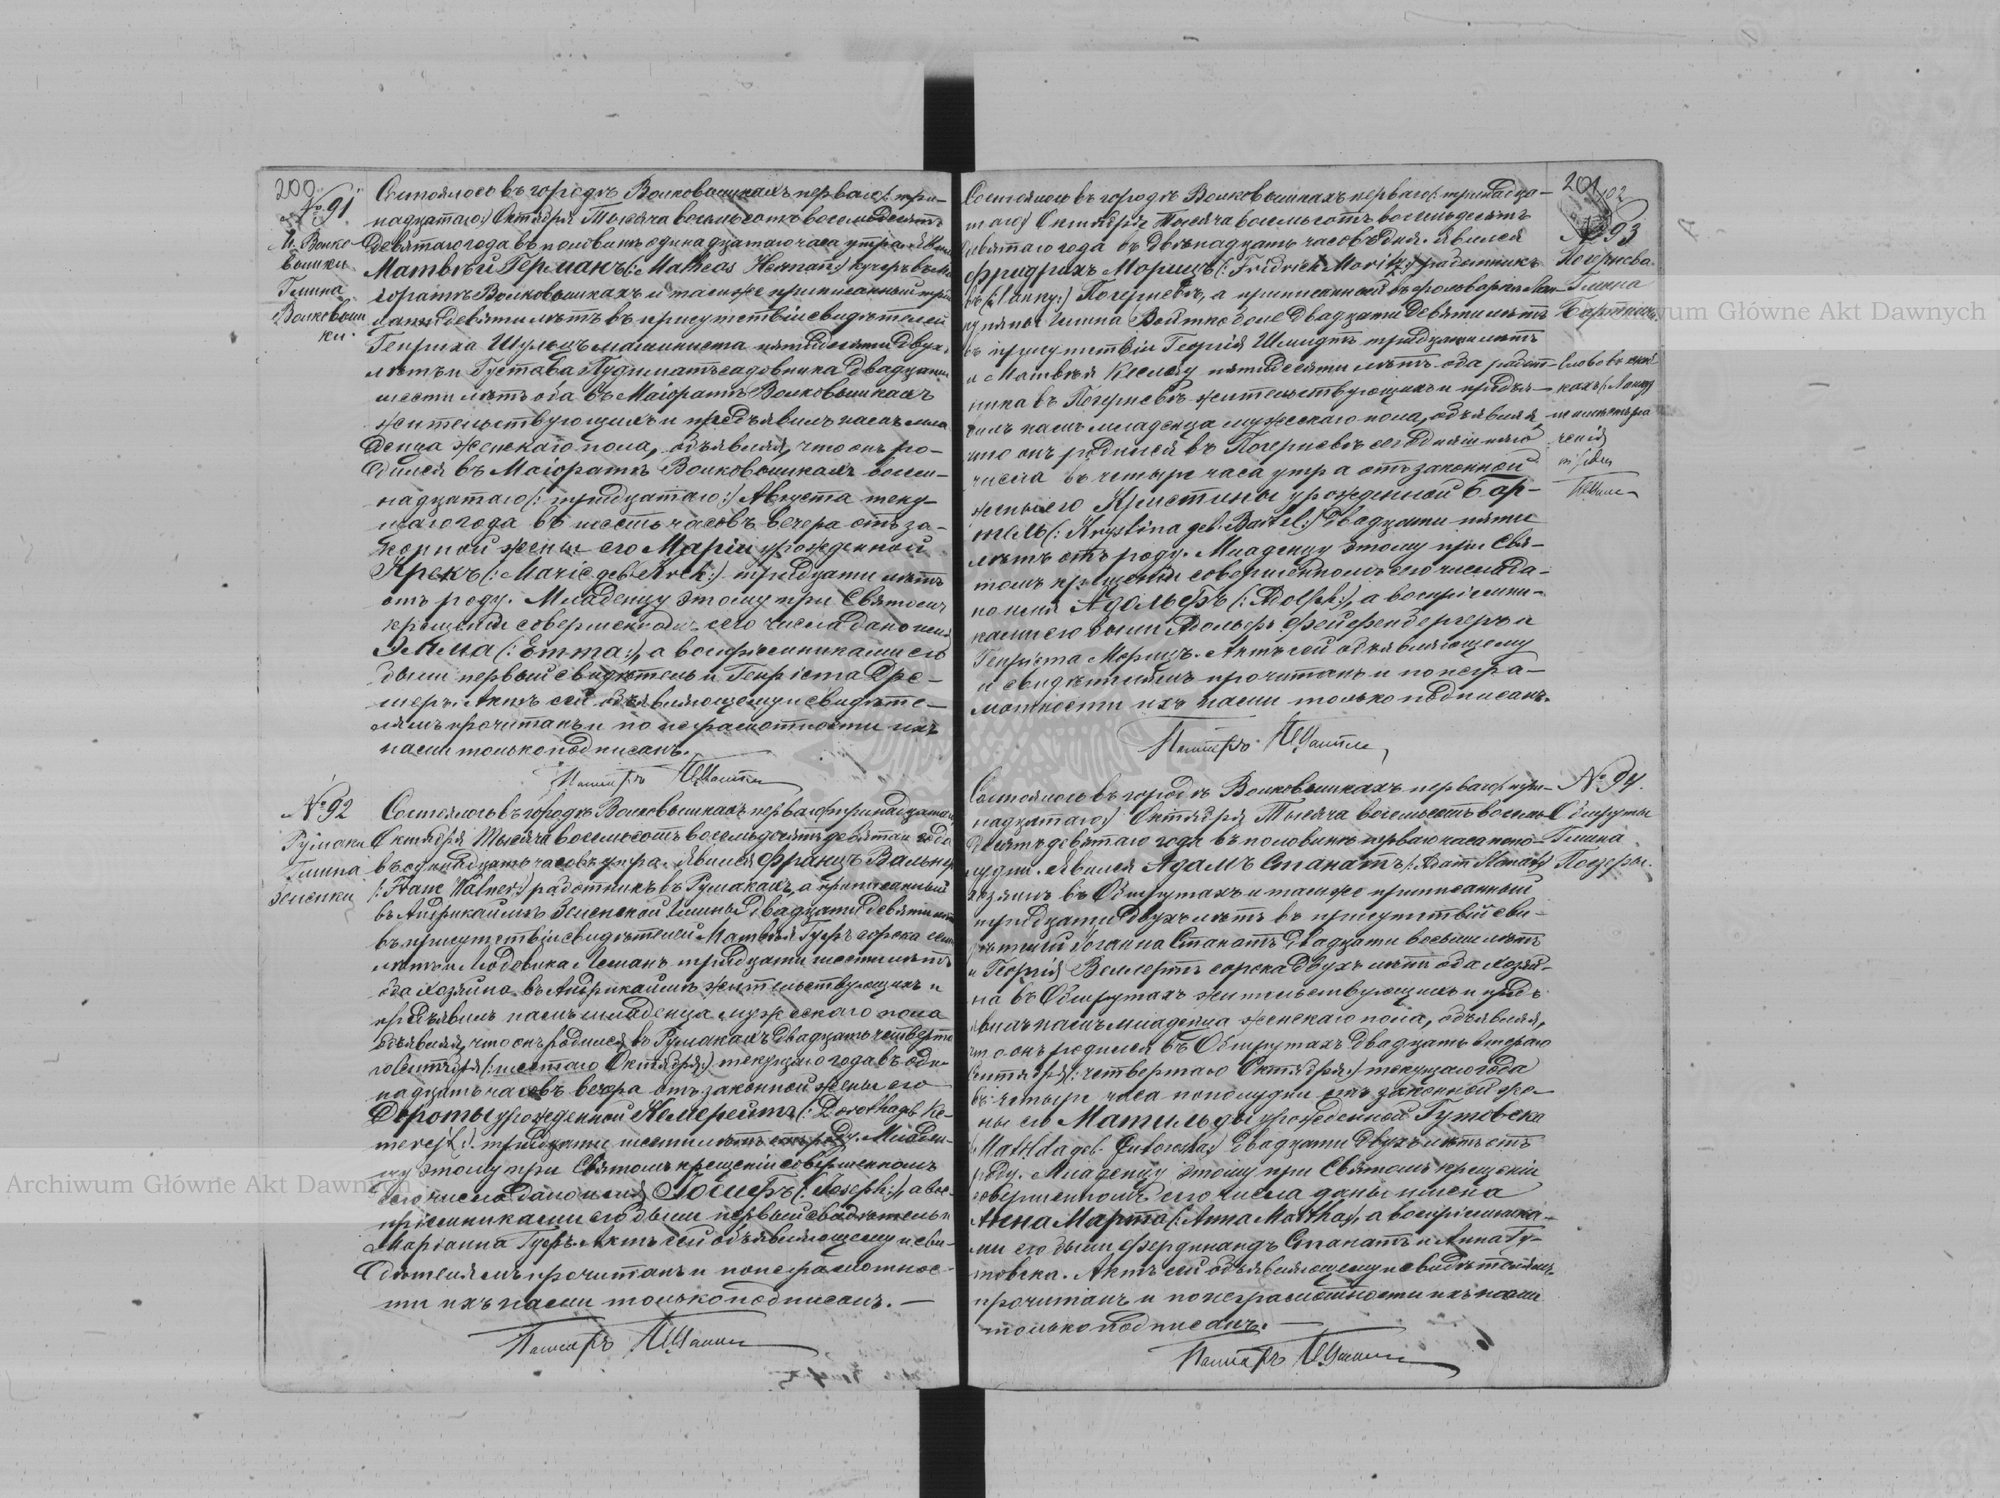 200
№ 91.
М. Волко-
вышки
Гмина
Волковыш
ки.
Состоялось въ городѣ Волковышкахъ перваго (: три-
надцатаго:) Октября Тысяча восемьсотъ восемьдесятъ
девятаго года въ половинѣ одинадцатаго часа утра. Явился
Матвѣй Германъ (: Matheas Herman:) кучеръ въ М.
горатѣ Волковышкахъ и тамже приписанный три
дцати девяти лѣтъ въ присутствіи свидѣтелей
Генриха Шульцъ машиниста пятидесяти двухъ
лѣтъ и Густава садовника двадцати
шести лѣтъ оба въ Маіоратѣ Волковышкахъ
жительствующихъ и предъявилъ намъ мла
денца женскаго пола, объявляя, что онъ ро-
дился въ Маіоратѣ Волковышкахъ восем-
надцатаго (: тридцатаго:) Августа теку-
щаго года въ шесть часовъ вечера отъ за-
конной жены его Маріи урожденной
Крекъ (: Marie geb. Krek:) тридцати лѣтъ
отъ роду. Младенцу этому при Святомъ
крещеніи совершенномъ сего числа дано имя
Эмма (: Emma:), а воспріемниками его
были первый свидѣтель и Генріета Дре-
шеръ. Актъ сей объявляющему и свидѣте-
лямъ прочитанъ и по неграмотности ихъ
нами только подписанъ.
Пасторъ
№ 92
Румаки
Гмина
Зеленки
Состоялось въ городѣ Волковышкахъ перваго (: тринадцатаго:)
Октября Тысяча восемьсотъ восемьдесятъ девятаго года
въ одинадцать часовъ утра. Явился Францъ Вальнеръ
(: Franz Walner:) работникъ въ Румакахъ, а приписанный
въ Андрикаймѣ Зеленской Гмины двадцати девяти лѣтъ
въ присутствіи свидѣтелей Матвѣя Гуфъ сорока семи
лѣтъ и Людовика Леманъ тридцати шести лѣтъ
оба хозяина въ Андрикаймѣ жительствующихъ и
предъявилъ намъ младенца мужескаго пола
объявляя, что онъ родился въ Румакахъ двадцать четверта
го Сентября (: шестаго Октября:) текущаго года въ оди-
надцать часовъ вечера отъ законной жены его
Дороты урожденной Кемерейтъ (: Dorothageb. Ke-
merejt:) тридцати шести лѣтъ отъ роду. Младен-
цу этому при Святомъ крещеніи совершенномъ
сего числа дано имя Іосифъ (: Joseph:), а вос-
пріемниками его были первый свидѣтель и
Маріанна Гуфъ. Актъ сей объявляющему и сви-
дѣтелямъ прочитанъ и по неграмотнос-
ти ихъ нами только подписанъ. —
Пасторъ
201
102
№ 93
Погернева
Гмина
Бартники
Слово въ скоб-
кахъ
Состоялось въ городѣ Волковышкахъ перваго (: тринадца-
таго) Октября Тысяча восемьсотъ восемьдесятъ
девятаго года въ двѣнадцать часовъ дня. Явился
Фридрихъ Морицъ (: Fridrich Moritz:) работникъ
въ Погерневѣ, а приписанный въ фольваркѣ
Гмина Войткоболе двадцати девяти лѣтъ
въ присутствіи Георгія Шмидтъ тридцати лѣтъ
и Матвѣя Кеслау пятидесяти лѣтъ оба работ-
ника въ Погерневѣ жительствующихъ и предъя-
вилъ намъ младенца мужескаго пола, объявляя,
что онъ родился въ Погерневѣ сегодняшняго
числа въ четыре часа утра отъ законной
жены его Кристины урожденной Бар-
тель (: Krystina geb. Bartel:) двадцати пяти
лѣтъ отъ роду. Младенцу этому при Свя-
томъ крещеніи совершенномъ сего числа да-
но имя Адольфъ (: Adolph:), а воспріемни-
ками его были Адольфъ Фейерендергеръ и
Генріета Морицъ. Актъ сей объявляющему
и свидѣтелямъ прочитанъ и по негра-
мотности ихъ нами только подписанъ.
Пасторъ
№ 94.
Обшруты
Гмина
Поезеры.
Состоялось въ городѣ Волковышкахъ перваго (: три-
надцатаго:) Октября Тысяча восемьсотъ восемь
десятъ девятаго года въ половинѣ перваго часа попо-
лудни. Явился Адамъ Станатъ (: Adam Stanat:)
хозяинъ въ Обшрутахъ и тамже приписанный
тридцати двухъ лѣтъ въ присутствіи сви-
дѣтелей Іоганна Станатъ двадцати восьми лѣтъ
и Георгія Веллертъ сорока двухъ лѣтъ оба хозяй-
на въ Обшрутахъ жительствующихъ и предъ
явилъ намъ младенца женскаго пола, объявляя,
что онъ родился въ Обшрутахъ двадцать втораго
Сентября (: четвертаго Октября:) текущаго года
въ четыре часа пополудни отъ законной же-
ны его Матильды урожденной Гутовска
(Mathilda geb. Gutowska) двадцати двухъ лѣтъ отъ
роду. Младенцу этому при Святомъ крещеніи
совершенномъ сего числа даны имена
Анна Марта (: Anna Martha:), а воспріемника-
ми его были Фердинандъ Станатъ и Анна Гу-
товска. Актъ сей объявляющему и свидѣтелямъ
прочитанъ и по неграмотности ихъ нами
только подписанъ. —
Пасторъ
Archiwum Główne Akt Dawnych
Archiwum Główne Akt Dawnych